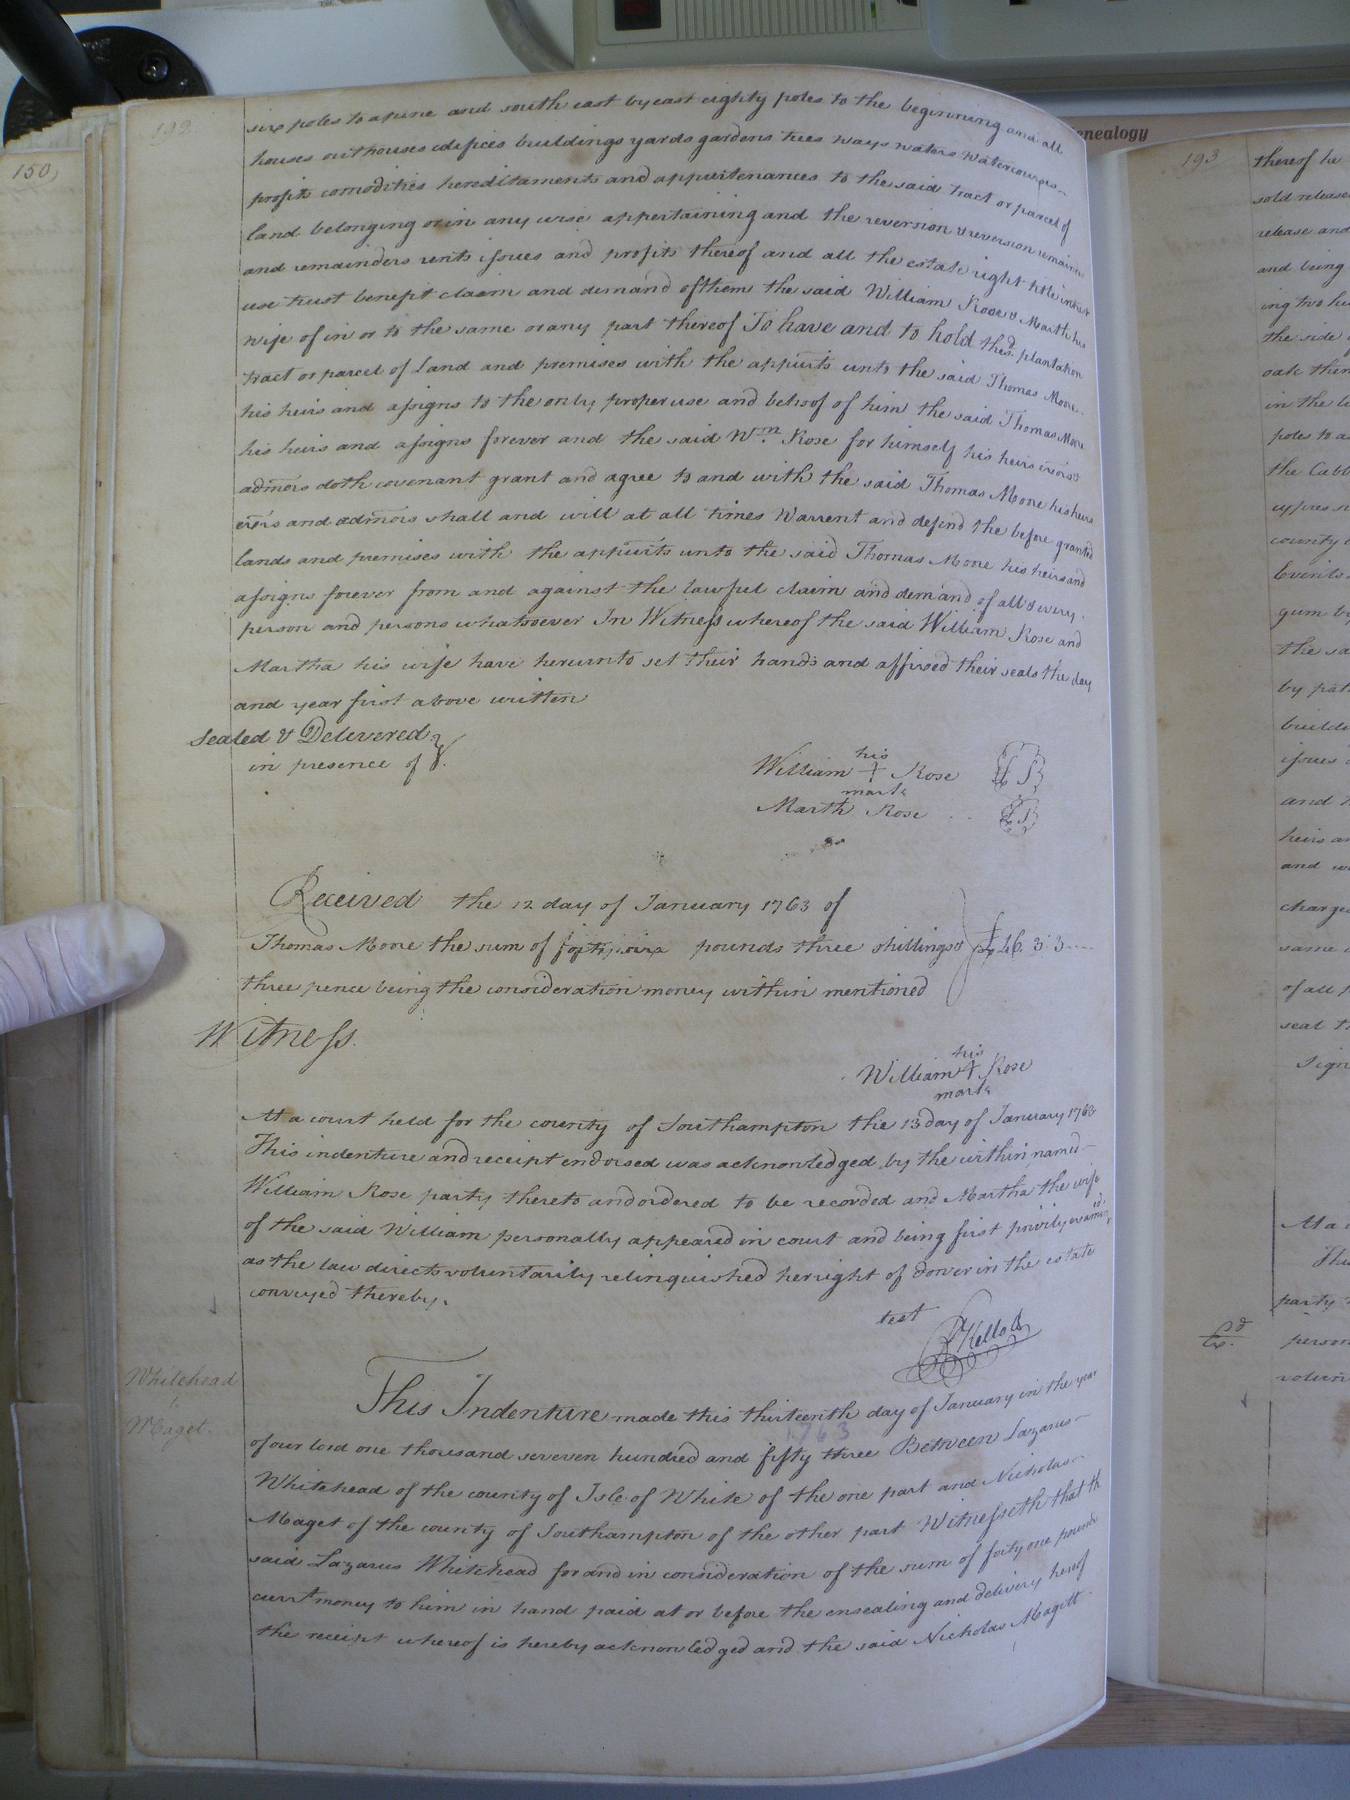 192
six poles to a pine and south east by east eighty poles to the beginning and all
houses outhouses edifices buildings yards gardens trees ways waters watercourses
profits comodities hereditaments and appurtenances to the said tract or parcel of
land belonging or in any wise appertaining and the reversion & reversion remainder
and remainders rents issues and profits thereof and all the estate right title interest
use trust benefit claim and demand of them the said William Rose & Marth his
wife of in or to the same or any part thereof To have and to hold the sd. plantation
tract or parcel of Land and premises with the appurts unto the said Thomas Moore
his heirs and assigns to the only proper use and behoof of him the said Thomas Moore
his heirs and assigns forever and the said Wm. Rose for himself his heirs exors &
admors doth covenant grant and agree to and with the said Thomas Moore his heirs
exors and admors shall and will at all times Warrent and defend the before granted
lands and premises with the appurts unto the said Thomas Moore his heirs and
assigns forever from and against the lawful claim and demand of all & every
person and persons whatsoever In Witness whereof the said William Rose and
Martha his wife have hereunto set their hands and affixed their seals the day
and year first above written
Sealed & Delivered
in presence of
his
William + Rose LS
mark
Marth Rose .. LS
Received the 12 day of January 1763 of
Thomas Moore the sum of forty six pounds three shillings & £46.3.3
three pence being the consideration money within mentioned
Witness.
his
William + Rose
mark
At a court held for the county of Southampton the 13 day of January 1763
This indenture and receipt endorsed was acknowledged by the within named
William Rose party thereto and ordered to be recorded and Martha the wife
of the said William personally appeared in court and being first privily examined
as the law directs voluntarily relinquished her right of dower in the estate
conveyed thereby.
test
R Kello Ck
Whitehead
to
Maget
This Indenture made this thirteenth day of January in the year
1763
of our lord one thousand seveven hundred and fifty three Between Lazarus
Whitehead of the county of Isle of White of the one part and Nicholas
Maget of the county of Southampton of the other part Witnesseth that th
said Lazarus Whitehead for and in consideration of the sum of forty one pounds
currt money to him in hand paid at or before the ensealing and delivery hereof
the receipt whereof is hereby acknowledged and the said Nicholas Magett
150
enealogy
193
thereof he
sold release
release and
and being
ing two hu
the side
oak then
in the
poles to a
the Cabb
cypres
county
Everits
gum by
the sa
by pat
build
issues
and
heirs an
and
charge
same
of all
seal t
Sign
At a
Thi
party
person
volun